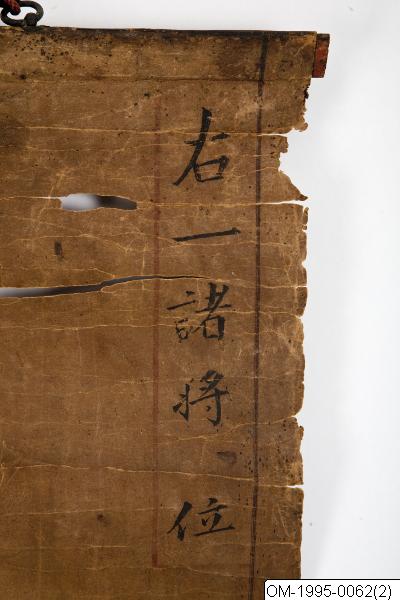 右一諸將位
OM-1995-0062(2)